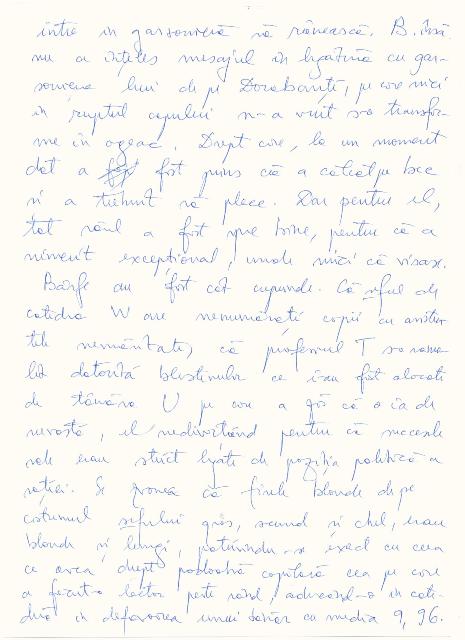 intre in garsonieră să rânească. B. însă
nu a înțeles mesajul în legătură cu gar-
soniera lui de pe Dorobanți, pe care nici
în ruptul capului n-a vrut s-o transfor-
me în ogeac. Drept care, la un moment
dat a fost prins că a călcat pe bec
și a trebuit să plece. Dar pentru el,
tot răul a fost spre bine, pentru că a
nimerit excepțional, unde nici că visase.
Bârfe au fost cât cuprinde. Că șeful de
catedră W are nenumărați copii cu asisten-
tele nemăritate, că profesorul T s-a rama-
lit datorită blestemelor ce i-au fost alocate
de tânăra U pe care a dus că o ia de
nevastă, el nedivorțând pentru că succesele
sale erau strict legate de poziția politică a
soției. Se zvonea că firele blonde de pe
costumul șefului gras, scund și chel, erau
blonde și lungi, potrivindu-se exact cu ceea
ce avea drept podoabă capilară cea pe care
a făcut-o lector peste rând, aducând-o în cate-
dră în defavoarea unui tânăr cu media 9,96.